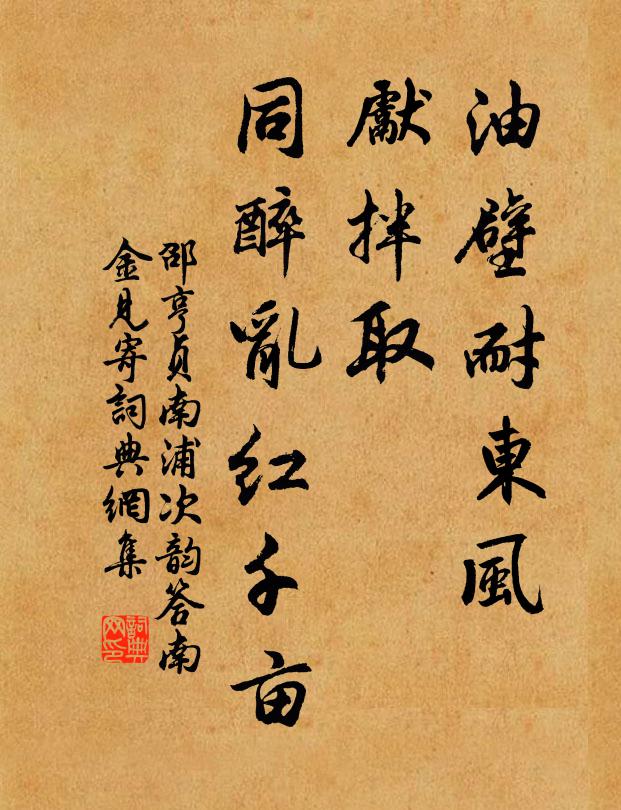 油壁耐東風
獻拌取
同醉亂紅千亩
邵亨貞南浦次韵答南
金見寄詞典網集
詞典網印